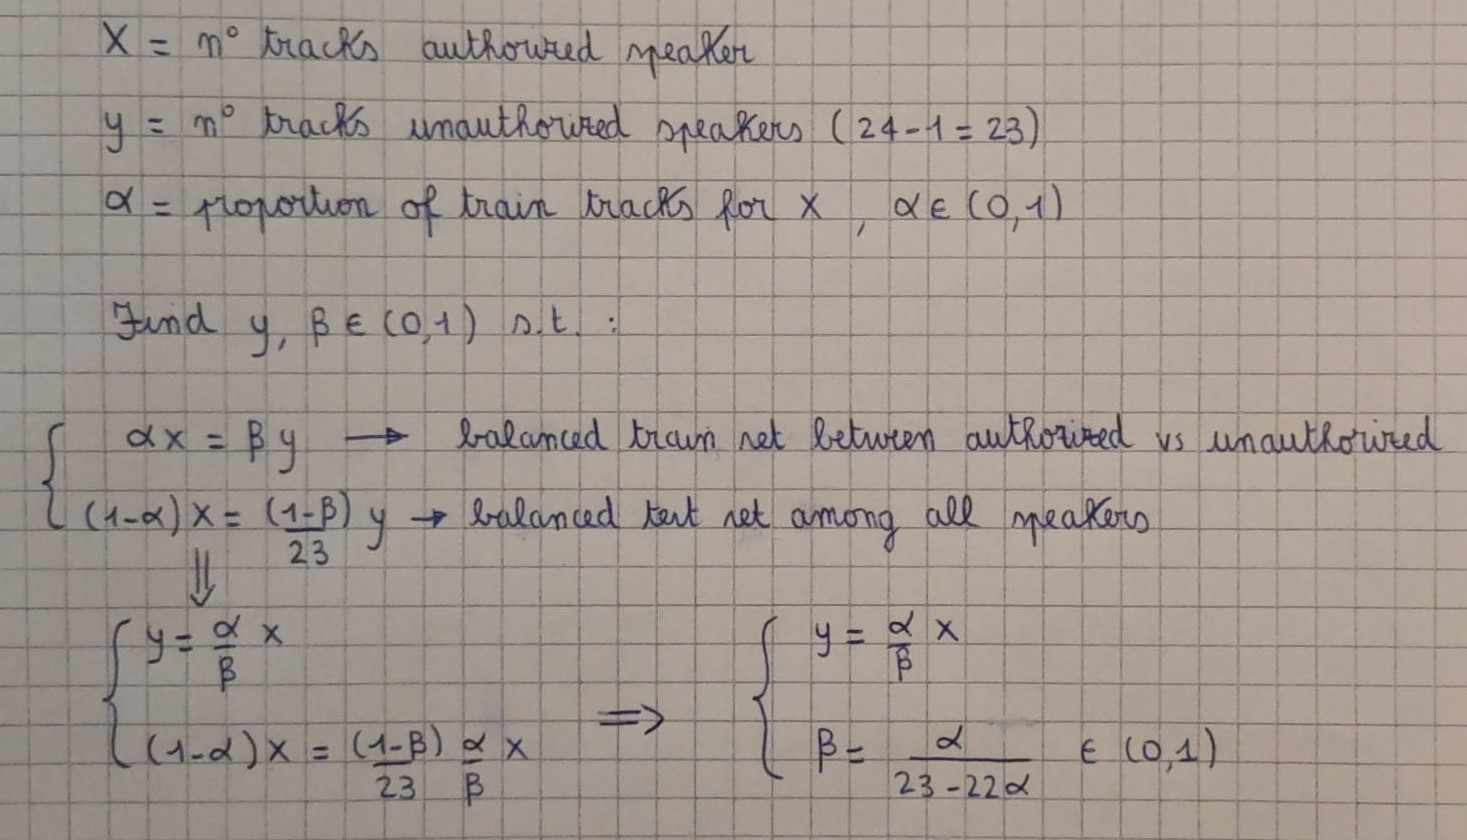 X = n° tracks authorized speaker
y = n° tracks unauthorized speakers (24-1=23)
α = proportion of train tracks for x, α ∈ (0,1)
Find y, β ∈ (0,1) s.t. :
αx = βy → balanced train set between authorized vs unauthorized
(1-α)x = (1-β)/23 y → balanced test set among all speakers
⇓
y = α/β x
(1-α)x = (1-β)/23 α/β x
⇒
y = α/β x
β = α/(23-22α) ∈ (0,1)